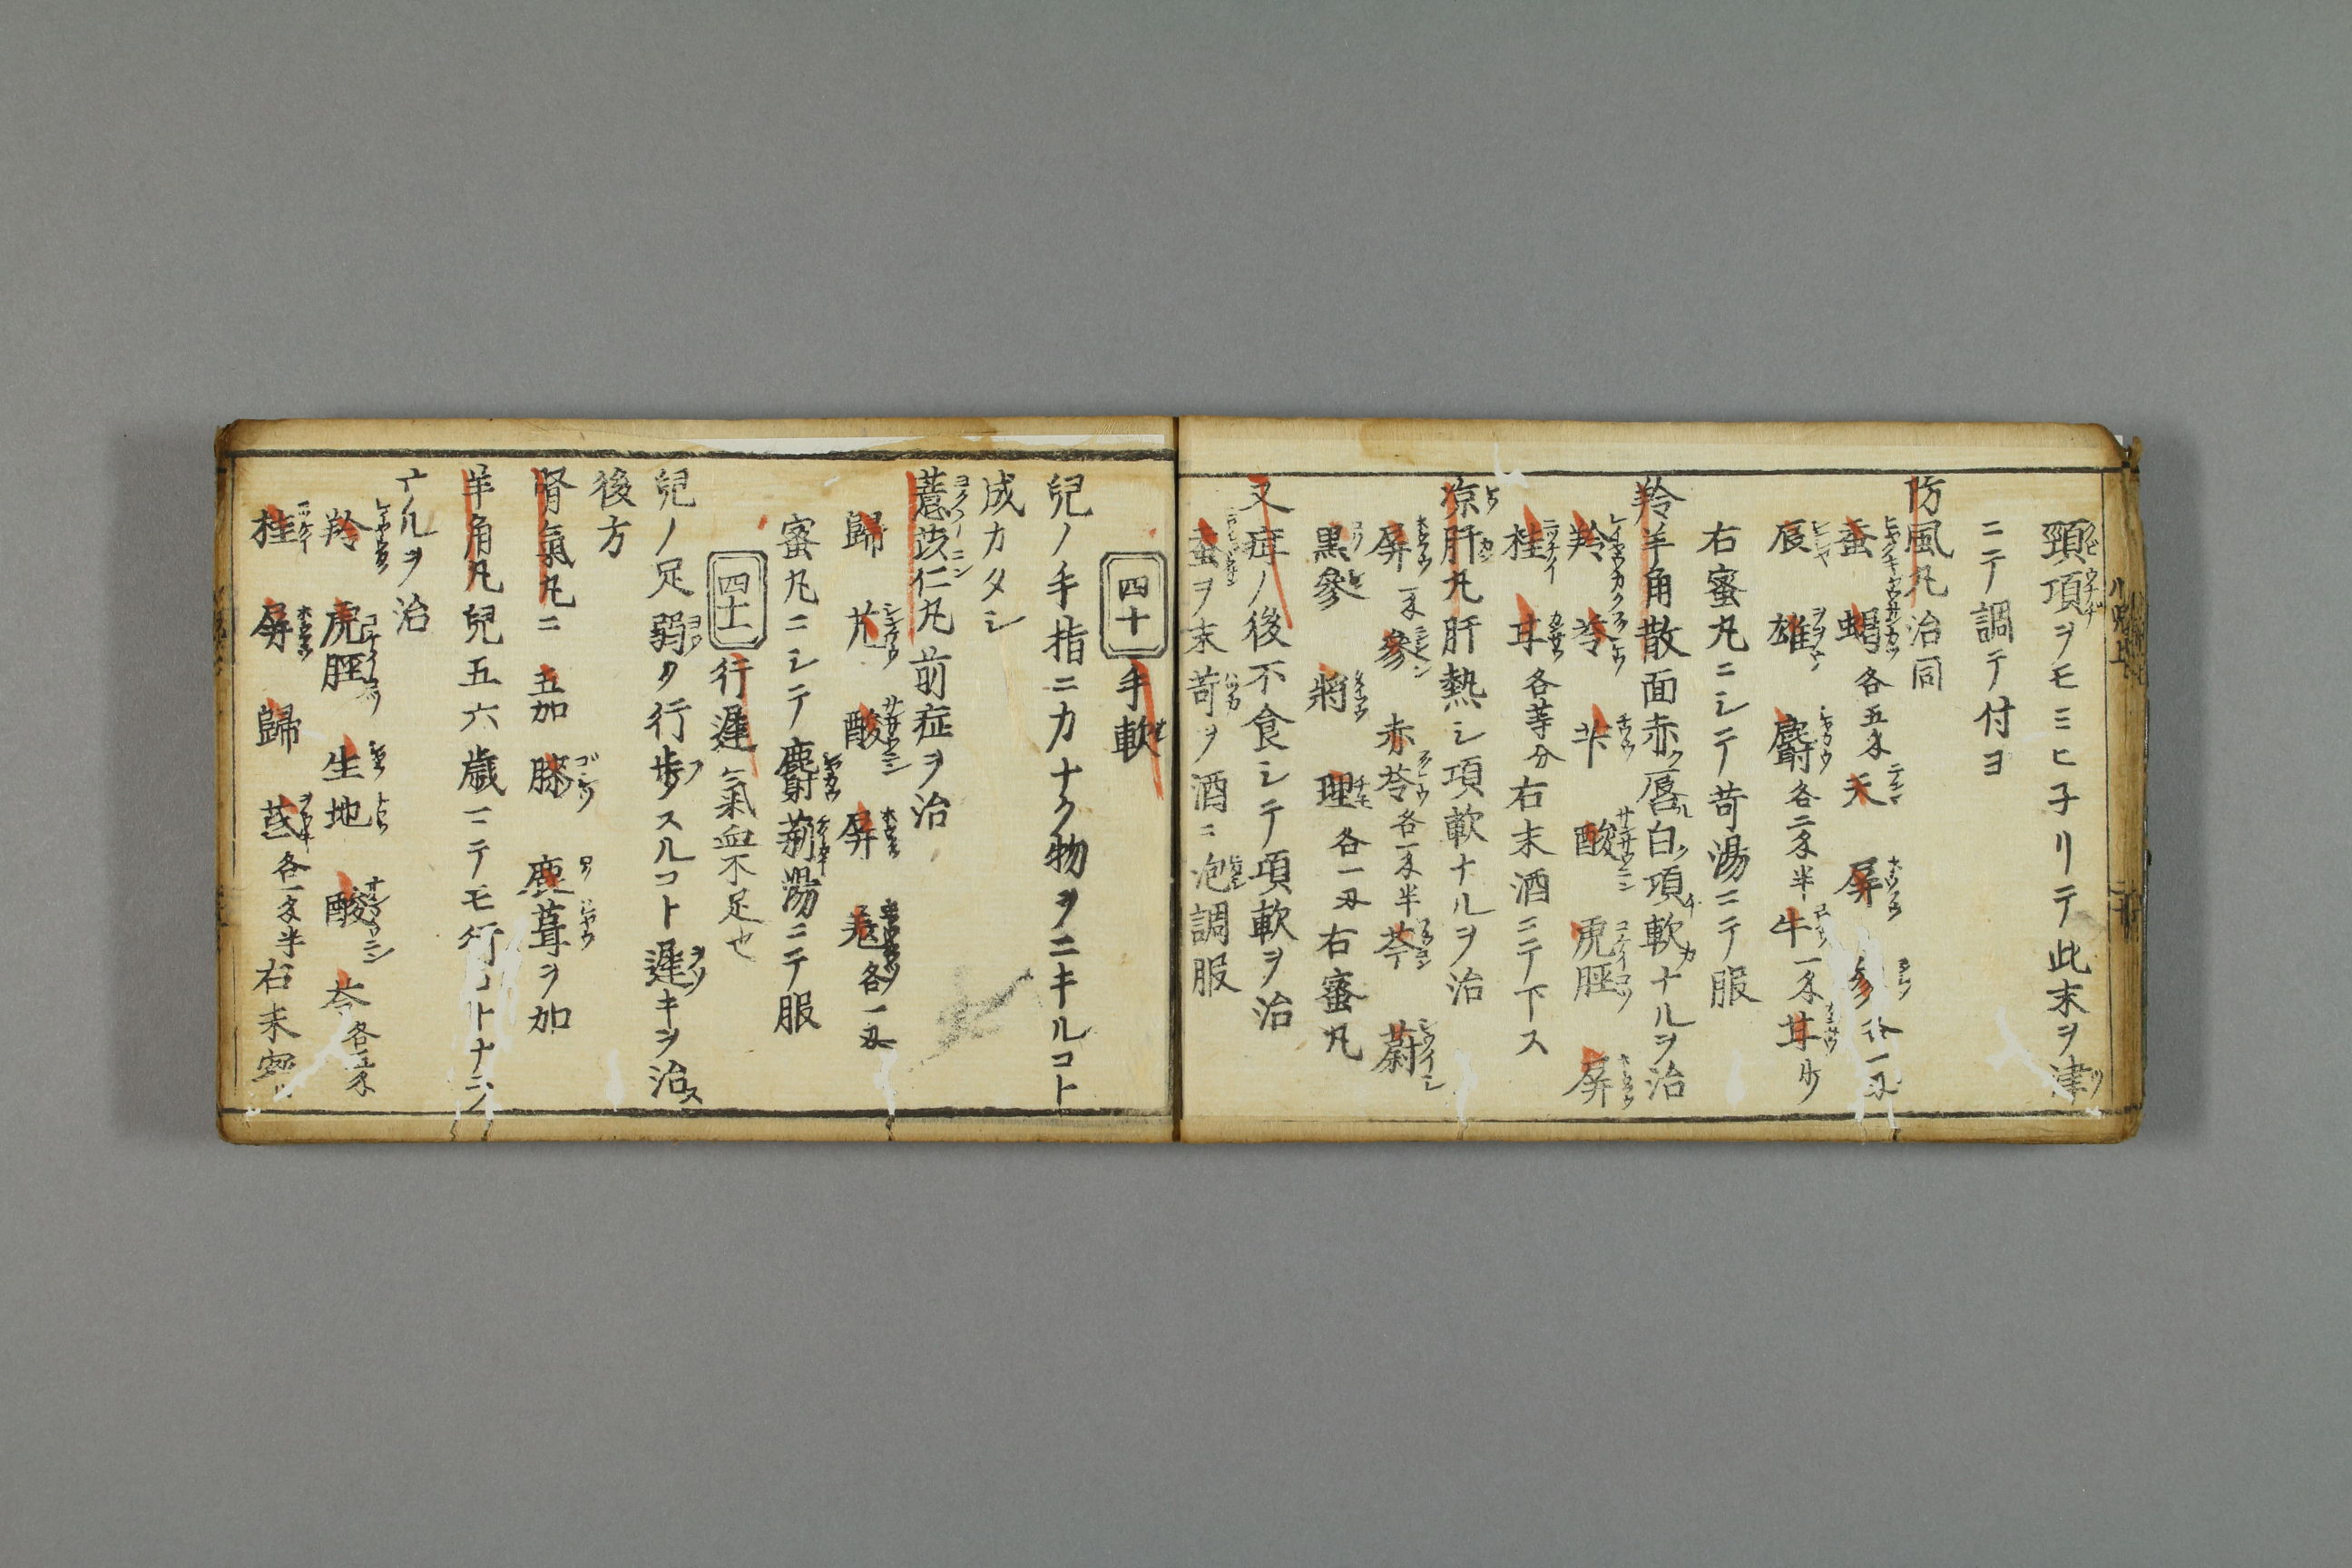 頸項ヲモミヒ子リテ此末ヲ津
ニテ調テ付ヨ
防風丸治同
蚕 蝎各五匁 天 屏 參各一匁
辰 雄 麝各二匁半 牛一匁 甘少
右蜜丸ニシテ苛湯ニテ服
羚羊角散面赤唇白項軟ナルヲ治
羚 苓 芣 酸 虎脛 屏
桂 甘各等分右末酒ニテ下ス
凉肝丸肝熱シ項軟ナルヲ治
屏一匁 參 赤苓各一匁半 芩 蔚
黒參 將 理各一匁右蜜丸
又症ノ後不食シテ項軟ヲ治
蚕ヲ末苛ヲ酒ニ泡調服
四十 手軟
兒ノ手指ニカナク物ヲニキルコト
成カタシ
薏苡仁丸前症ヲ治
歸 艽 酸 屏 各一匁
蜜丸ニシテ麝荊湯ニテ服
四十一 行遲氣血不足也
兒ノ足弱ク行歩スルコト遲キヲ治ス
後方
腎氣丸ニ五加 膝 鹿茸ヲ加
羊角丸兒五六歳ニテモ行コトナニ
ナルヲ治
羚 虎脛 生地 酸 苓各五匁
桂 屏 歸 芪各一匁半右末蜜